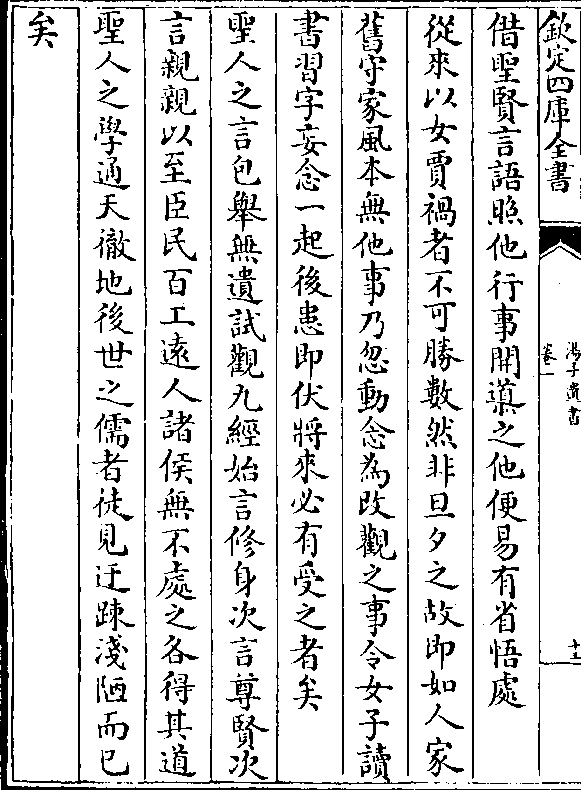 欽定四庫全書
湯子遺書
卷一
十二
借聖賢言語照他行事開導之他便易有省悟處
從來以女賈禍者不可勝數然非旦夕之故即如人家
舊守家風本無他事乃忽動念為改觀之事令女子讀
書習字妄念一起後患即伏將來必有受之者矣
聖人之言包舉無遺試觀九經始言修身次言尊賢次
言親親以至臣民百工遠人諸侯無不處之各得其道
聖人之學通天徹地後世之儒者徒見迂踈淺陋而已
矣